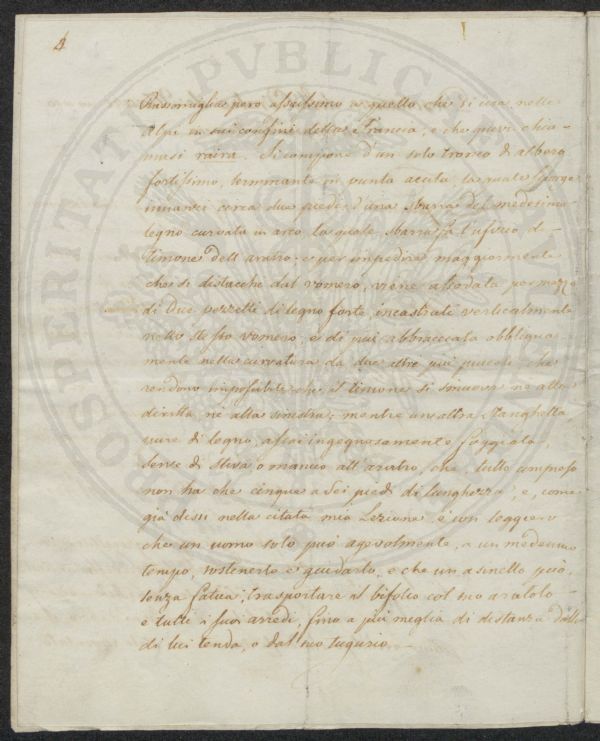 4
PUBLICAE
PROSPERITATI
Rassomiglia però assaissimo a quello, che si usa nelle
Alpi in sui confini della Francia, e che nuvi chia-
masi raira. Si compone d'un solo tronco di albero
fortissimo, terminante in punta acuta, la quale sporge
innanzi circa due piedi d'una sbarra del medesimo
legno curvata in arco la quale sbarra fa l'ufficio di
timone dell'aratro e per impedire maggiormente
che si distacche dal vomero, viene assodata per mezzo
di due pezzetti di legno forte incastrati verticalmente
nello stesso vomero, e di più abbracciata obbliqua-
mente nella curvatura da due altre più piccole che
rendono impossibile che il timone si smuova nè alla
diritta, nè alla sinistra; mentre un'altra stanghetta,
pure di legno, assai ingegnosamente foggiata,
serve di stiva o manico all'aratro, che tutto composto
non ha che cinque a sei piedi di lunghezza; e, come
già dissi nella citata mia Lezione, è sì leggiero
che un uomo solo può agevolmente, a un medesimo
tempo, sostenerlo e guidarlo, e che un asinello può
senza fatica, trasportare il bifolco col suo aratolo
e tutti i suoi arredi, fino a più meglia di distanza dalla
di lui tenda, o dal suo tugurio.